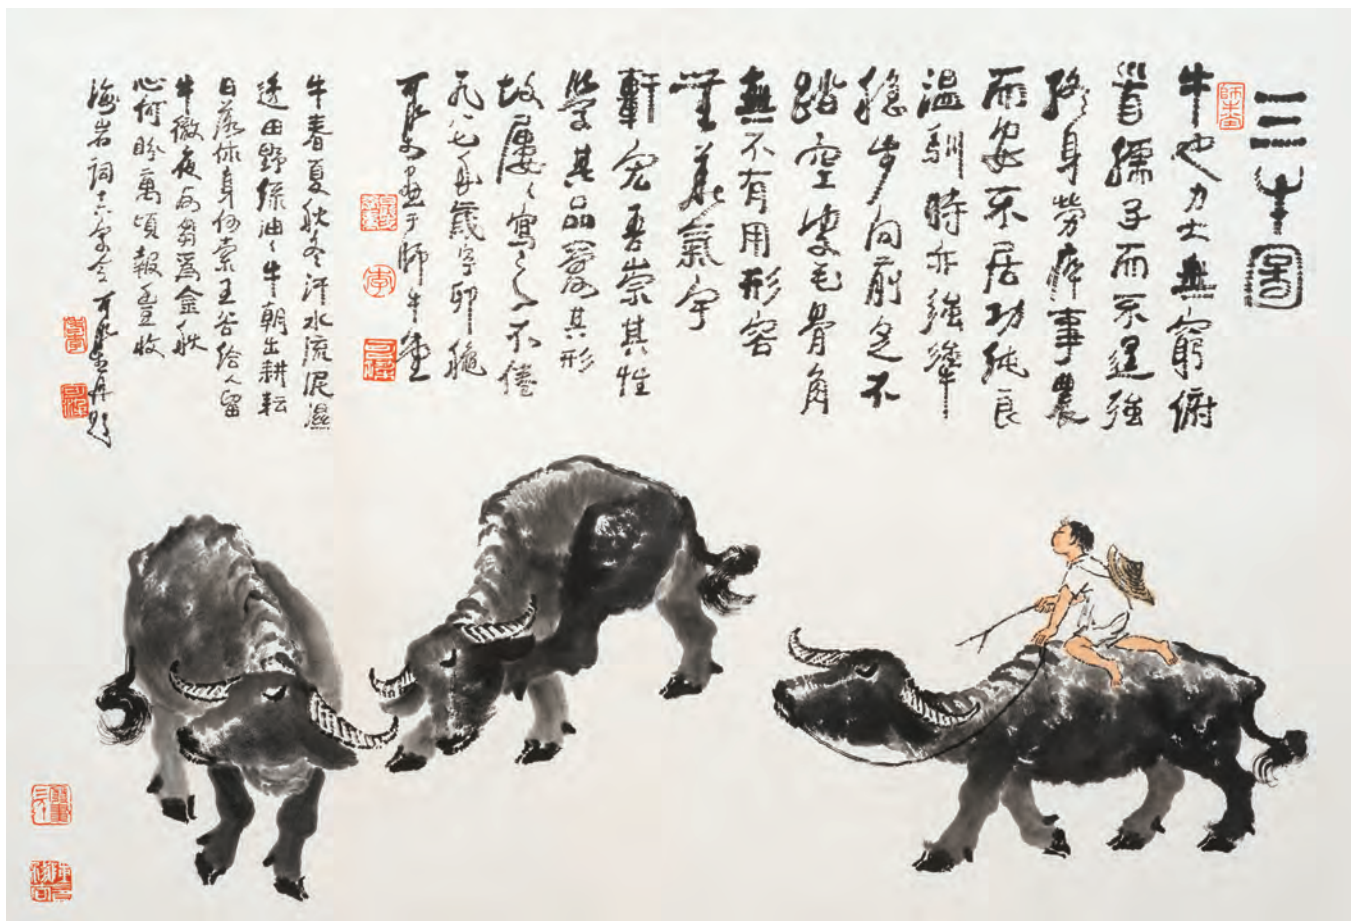 三牛圖
師牛堂
牛也力大無窮俯
首孺子而不逞強
終身勞瘁事農
而安不居功純良
溫馴時亦強犟
穩步向前足不
踏空皮毛骨角
無不有用形容
無華氣宇
軒宏吾崇其性
學其品愛其形
故屢〻寫之不倦
九八七年歲字卯龝
可染畫于師牛堂
李
牛春夏秋冬汗水流泥濕
透田野綠油〻牛朝出耕耘
日落休身何索五谷给人留
牛徹夜為金秋
心何盼萬頃報豐收
海岩詞 可染再題